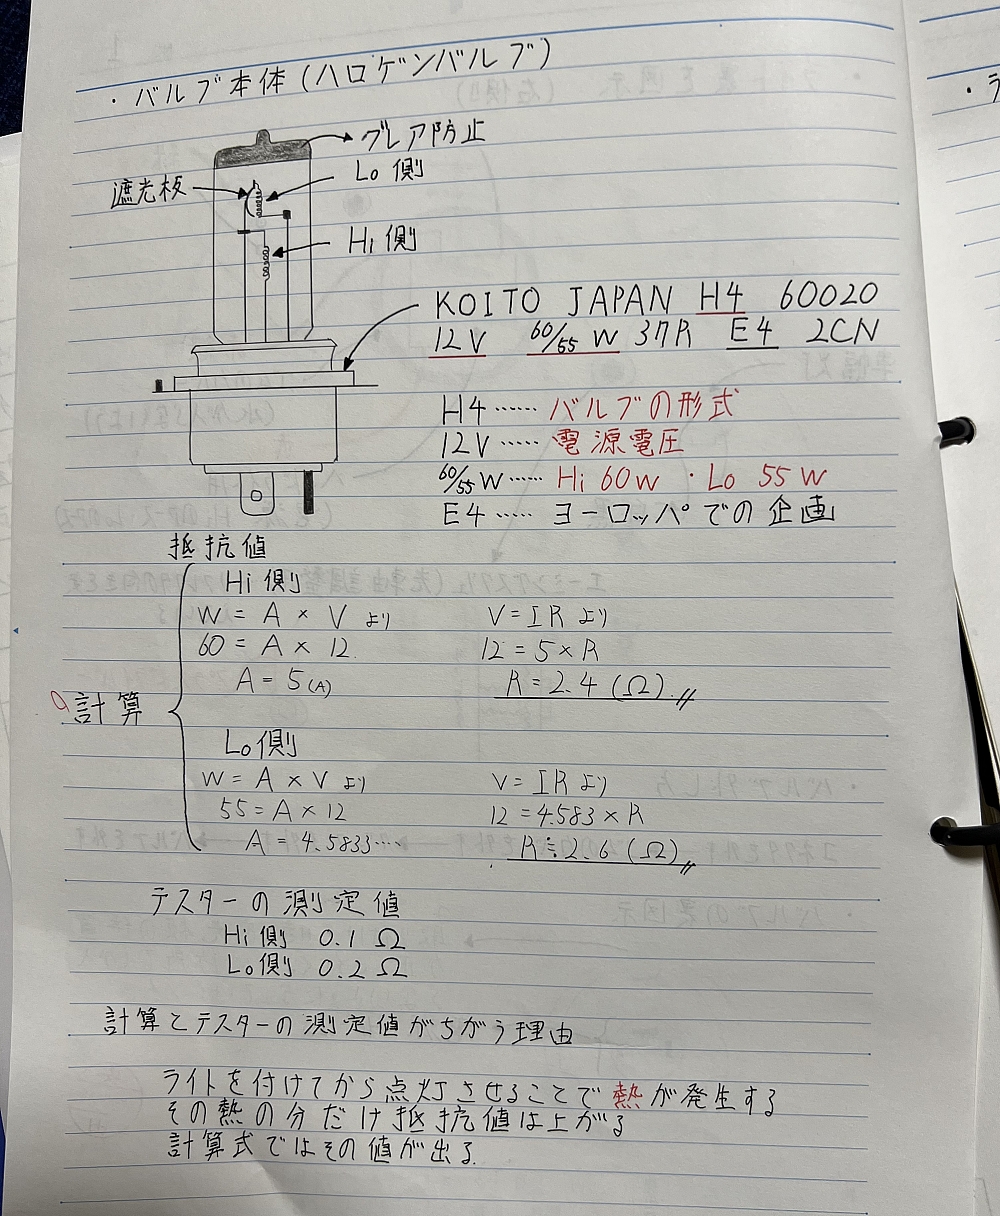 ・バルブ本体(ハロゲンバルブ)
グレア防止
Lo側
遮光板
Hi側
KOITO JAPAN H4 60020
12V 60/55W 37R E4 2CN
H4……バルブの形式
12V……電源電圧
60/55W……Hi 60w・Lo 55w
E4……ヨーロッパでの企画
抵抗値
Hi側
W=A×Vより V=IRより
60=A×12. 12=5×R
A=5(A) R=2.4(Ω)
計算
Lo側
W=A×Vより V=IRより
55=A×12 12=4.583×R
A=4.5833…. R≒2.6(Ω)
テスターの測定値
Hi側 0.1Ω
Lo側 0.2Ω
計算とテスターの測定値がちがう理由
ライトを付けてから点灯させることで熱が発生する
その熱の分だけ抵抗値は上がる
計算式ではその値が出る.